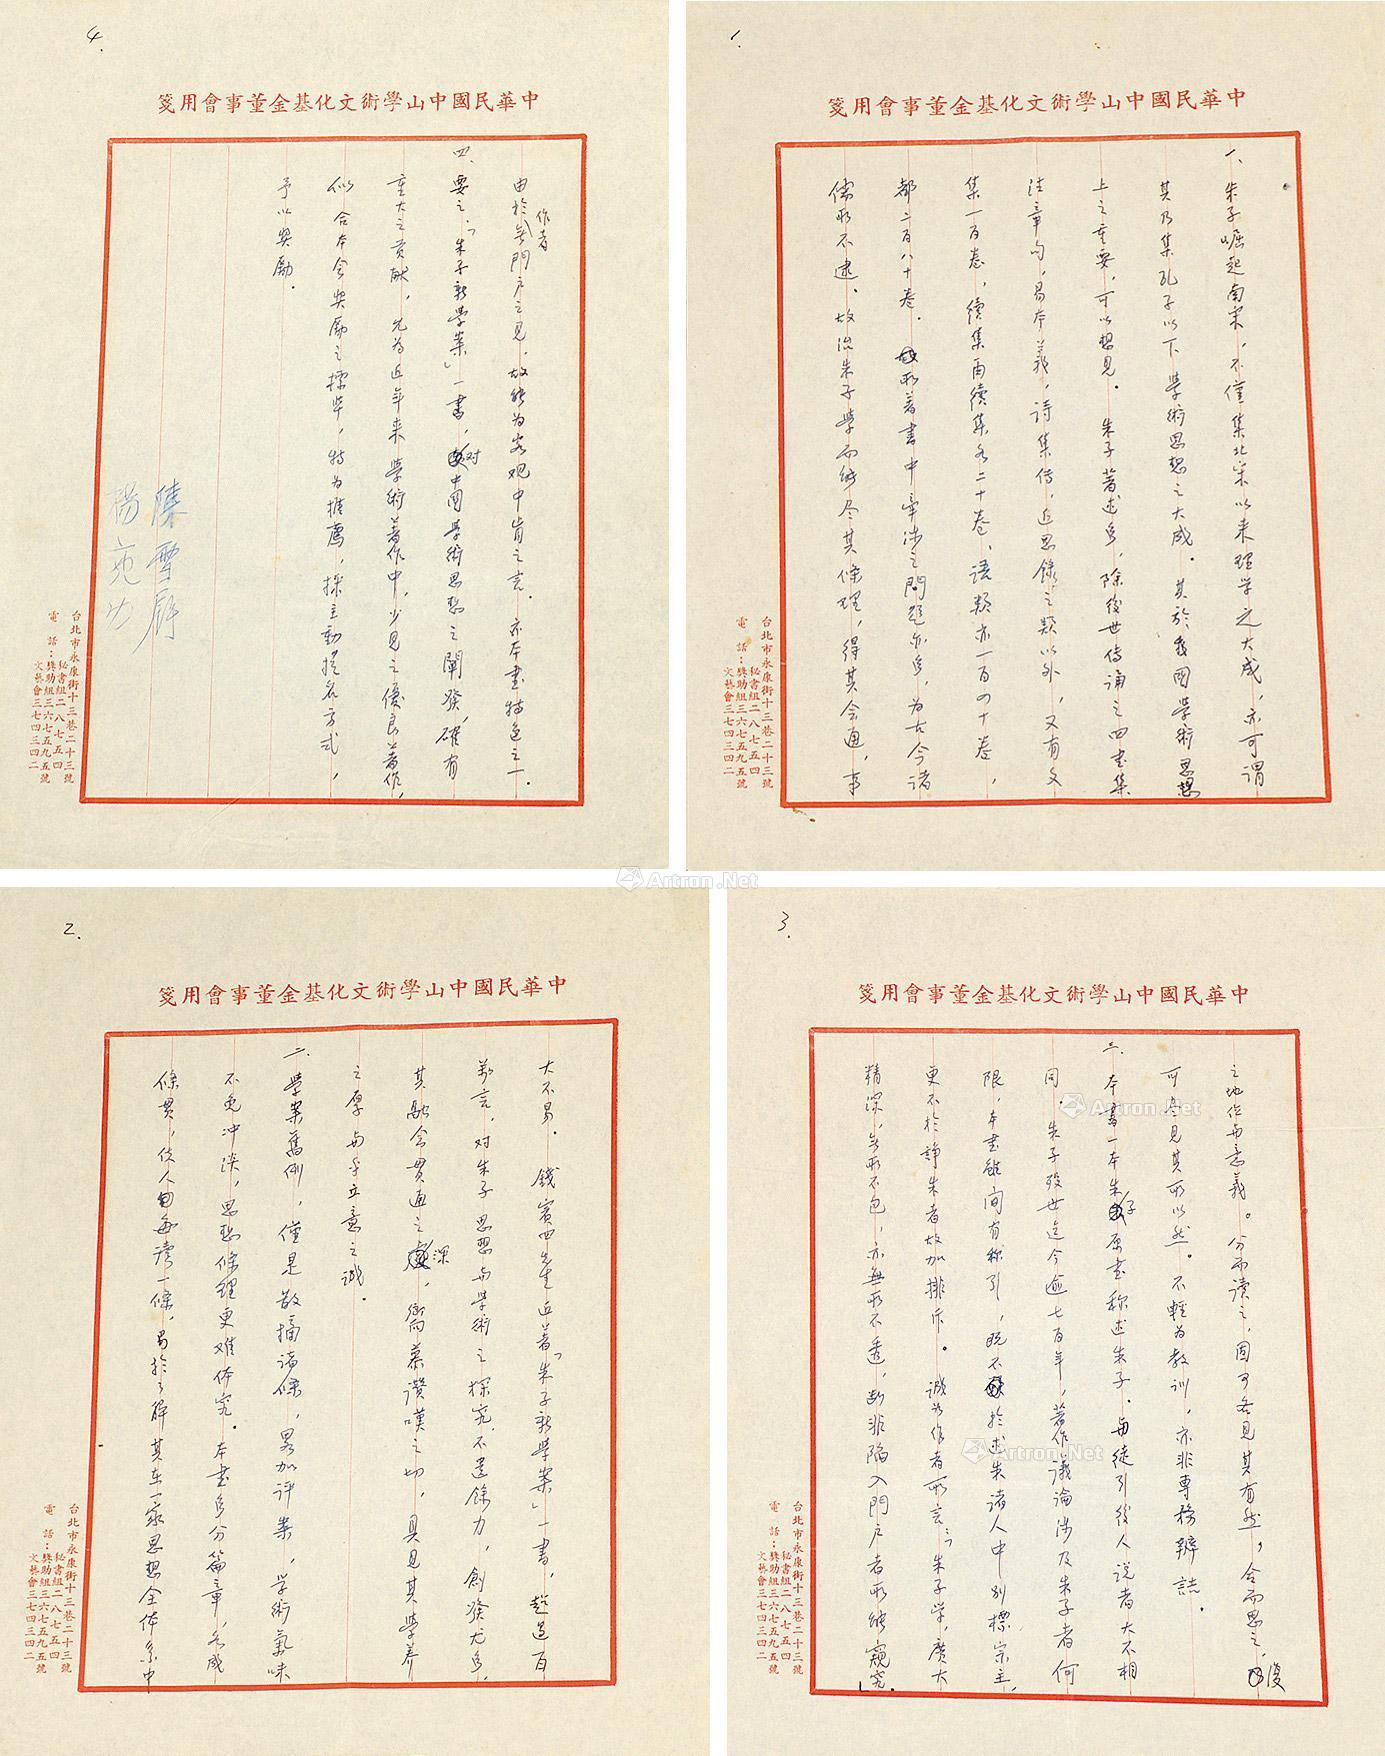 1.
中華民國中山學術文化基金董事會用箋
一、朱子崛起南宋，不僅集北宋以來理學之大成，亦可謂
其乃集孔子以下學術思想之大成。其於我國學術思想
上之重要，可以想見。朱子著述多，除後世傳誦之四書集
注章句，易本義，詩集傳，近思錄之類以外，又有文
集一百卷，續集兩續集各二十卷，語類亦一百四十卷，
都二百八十卷．所著書中牽涉之問題亦多，為古今諸
儒所不逮．故治朱子學而能尽其條理，得其会通，事
台北市永康街十三巷二十三號
電話：秘書組二八七五四
獎助組三六七五九五號
文藝會三七四三四二
2.
中華民國中山學術文化基金董事會用箋
大不易．錢賓四先生近著「朱子新學案」一書，超過百
萬言，对朱子思想与學術之探究，不遺餘力，創發尤多，
其融会貫通之深，嚮慕讚嘆之切，具見其學養
之厚与乎立意之誠．
二、學案舊例，僅是散摘諸條，畧加评案，學術氣味
不免冲淡，思想條理更难体究．本書多分篇章，各成
條貫，使人每讀一條，易於了解其在一家思想全体系中
台北市永康街十三巷二十三號
電話：秘書組二八七五四
獎助組三六七五九五號
文藝會三七四三四二
3.
中華民國中山學術文化基金董事會用箋
之地位与意義。分而讀之，固可各見其有然，合而思之，復
可尽見其所以然。不輕為教訓，亦非專務辯詰．
三．本書一本朱子原書称述朱子．与徒引後人說者大不相
同．朱子歿世迄今逾七百年，著作議論涉及朱子者何
限，本書雖間有称引，既不於述朱諸人中別標宗主，
更不於諍朱者故加排斥。誠如作者所言：「朱子學，廣大
精深，無所不包，亦無所不透，断非陷入門户者所能窺究」．
台北市永康街十三巷二十三號
電話：秘書組二八七五四
獎助組三六七五九五號
文藝會三七四三四二
4.
中華民國中山學術文化基金董事會用箋
由於作者無門户之見，故能为客观中肯之言．亦本書特色之一．
四、要之，「朱子新學案」一書，对中國學術思想之闡發，確有
重大之贡献，尤为近年来學術著作中，少見之優良著作，
似合本会奖励之標準，特为推薦，採主動提名方式，
予以奖励．
陳雪屏
楊亮功
台北市永康街十三巷二十三號
電話：秘書組二八七五四
獎助組三六七五九五號
文藝會三七四三四二
Artron.Net
Artron.Net
Artron.Net